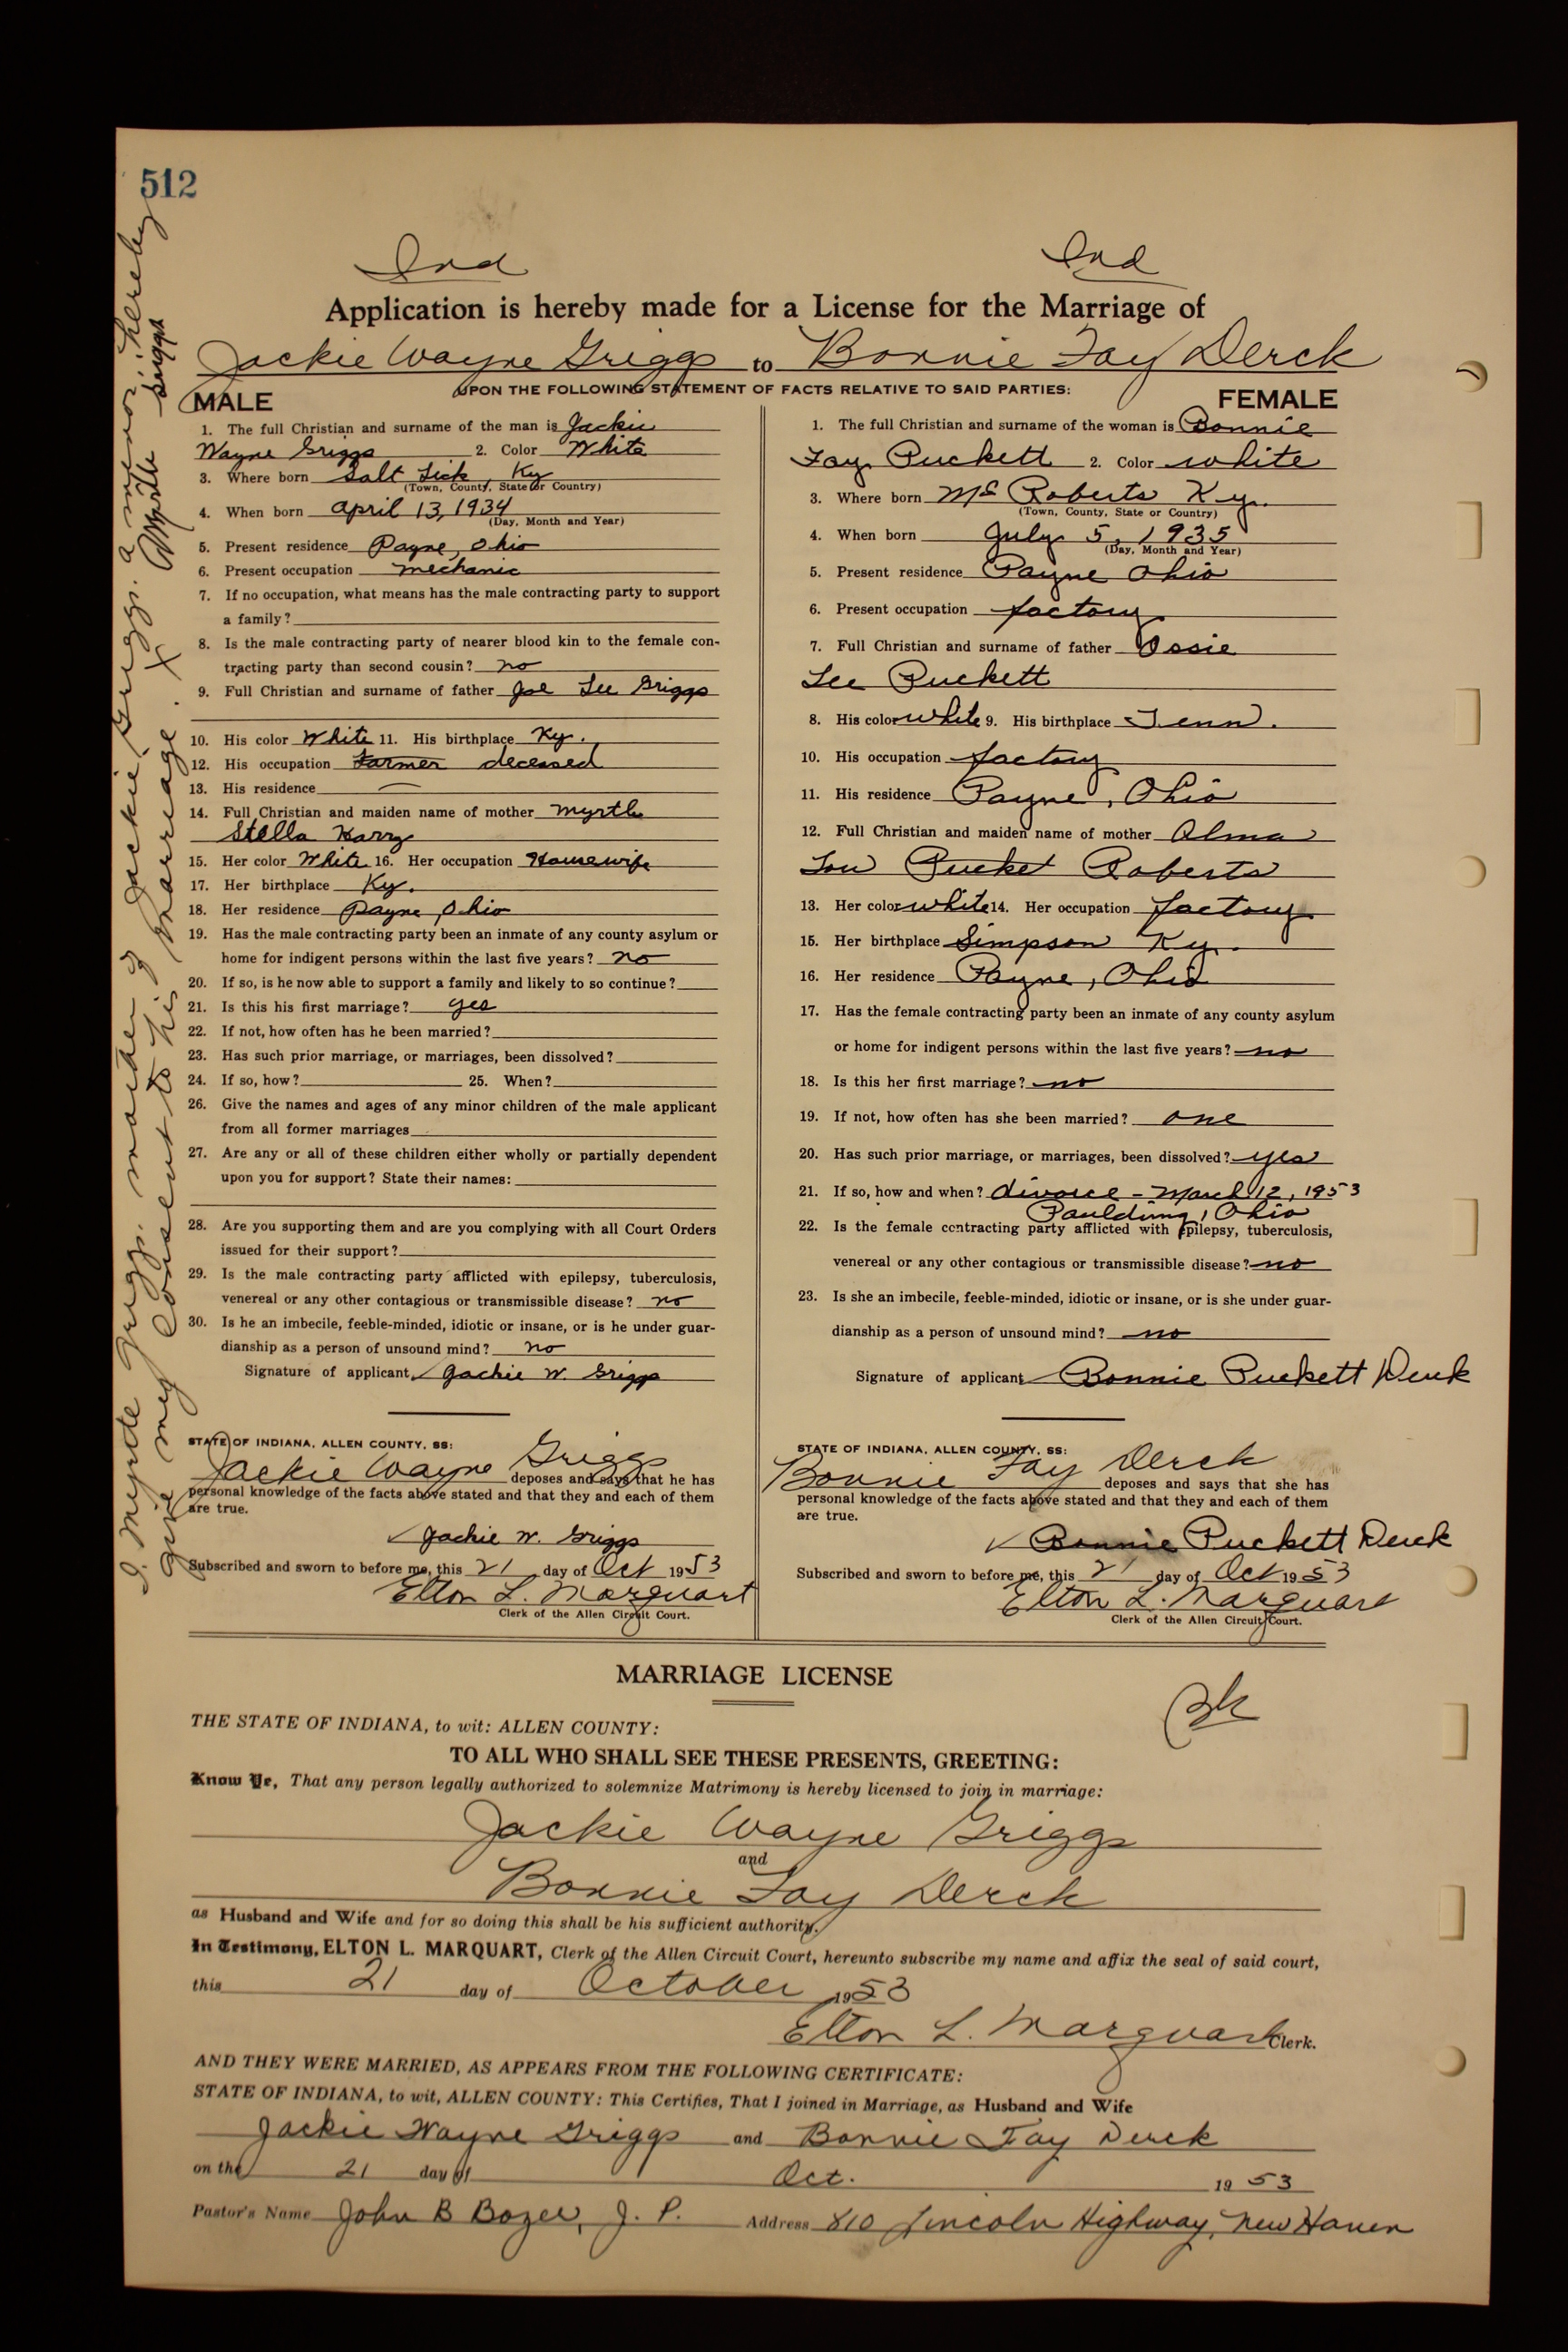 512
Ind Ind
Application is hereby made for a License for the Marriage of
Jackie Wayne Griggs to Bonnie Fay Derck
UPON THE FOLLOWING STATEMENT OF FACTS RELATIVE TO SAID PARTIES:
MALE
1. The full Christian and surname of the man is Jackie
Wayne Griggs 2. Color White
3. Where born Salt Lick Ky
(Town, County, State or Country)
4. When born April 13, 1934
(Day, Month and Year)
5. Present residence Payne, Ohio
6. Present occupation mechanic
7. If no occupation, what means has the male contracting party to support
a family?
8. Is the male contracting party of nearer blood kin to the female con-
tracting party than second cousin? no
9. Full Christian and surname of father Joe Lee Griggs
10. His color White 11. His birthplace Ky.
12. His occupation Farmer deceased
13. His residence —
14. Full Christian and maiden name of mother Myrtle
Stella
15. Her color White 16. Her occupation Housewife
17. Her birthplace Ky.
18. Her residence Payne, Ohio
19. Has the male contracting party been an inmate of any county asylum or
home for indigent persons within the last five years? no
20. If so, is he now able to support a family and likely to so continue?
21. Is this his first marriage? yes
22. If not, how often has he been married?
23. Has such prior marriage, or marriages, been dissolved?
24. If so, how? 25. When?
26. Give the names and ages of any minor children of the male applicant
from all former marriages
27. Are any or all of these children either wholly or partially dependent
upon you for support? State their names:
28. Are you supporting them and are you complying with all Court Orders
issued for their support?
29. Is the male contracting party afflicted with epilepsy, tuberculosis,
venereal or any other contagious or transmissible disease? no
30. Is he an imbecile, feeble-minded, idiotic or insane, or is he under guar-
dianship as a person of unsound mind? no
Signature of applicant Jackie W. Griggs
STATE OF INDIANA, ALLEN COUNTY, SS:
Jackie Wayne Griggs deposes and says that he has
personal knowledge of the facts above stated and that they and each of them
are true.
Jackie W. Griggs
Subscribed and sworn to before me, this 21 day of Oct 1953
Elton L. Marquart
Clerk of the Allen Circuit Court.
FEMALE
1. The full Christian and surname of the woman is Bonnie
Fay Puckett 2. Color white
3. Where born McRoberts Ky.
(Town, County, State or Country)
4. When born July 5, 1935
(Day, Month and Year)
5. Present residence Payne Ohio
6. Present occupation factory
7. Full Christian and surname of father Ossie
Lee Puckett
8. His color white 9. His birthplace Tenn.
10. His occupation factory
11. His residence Payne, Ohio
12. Full Christian and maiden name of mother Alma
Lou Pucket Roberts
13. Her color white 14. Her occupation factory
15. Her birthplace Simpson Ky.
16. Her residence Payne, Ohio
17. Has the female contracting party been an inmate of any county asylum
or home for indigent persons within the last five years? no
18. Is this her first marriage? no
19. If not, how often has she been married? one
20. Has such prior marriage, or marriages, been dissolved? yes
21. If so, how and when? divorce - March 12, 1953
Paulding, Ohio
22. Is the female contracting party afflicted with epilepsy, tuberculosis,
venereal or any other contagious or transmissible disease? no
23. Is she an imbecile, feeble-minded, idiotic or insane, or is she under guar-
dianship as a person of unsound mind? no
Signature of applicant Bonnie Puckett Derck
STATE OF INDIANA, ALLEN COUNTY, SS:
Bonnie Fay Derck deposes and says that she has
personal knowledge of the facts above stated and that they and each of them
are true.
Bonnie Puckett Derck
Subscribed and sworn to before me, this 21 day of Oct 1953
Elton L. Marquart
Clerk of the Allen Circuit Court.
I, Myrtle Griggs, mother of Jackie Griggs, a minor, hereby
give my consent to his marriage. X Myrtle Griggs
MARRIAGE LICENSE
THE STATE OF INDIANA, to wit: ALLEN COUNTY:
TO ALL WHO SHALL SEE THESE PRESENTS, GREETING:
Know Ye, That any person legally authorized to solemnize Matrimony is hereby licensed to join in marriage:
Jackie Wayne Griggs
and
Bonnie Fay Derck
as Husband and Wife and for so doing this shall be his sufficient authority.
In Testimony, ELTON L. MARQUART, Clerk of the Allen Circuit Court, hereunto subscribe my name and affix the seal of said court,
this 21 day of October 1953
Elton L. Marquart Clerk.
AND THEY WERE MARRIED, AS APPEARS FROM THE FOLLOWING CERTIFICATE:
STATE OF INDIANA, to wit, ALLEN COUNTY: This Certifies, That I joined in Marriage, as Husband and Wife
Jackie Wayne Griggs and Bonnie Fay Derck
on the 21 day of Oct. 1953
Pastor's Name John B Bozer, J. P. Address 810 Lincoln Highway, New Haven